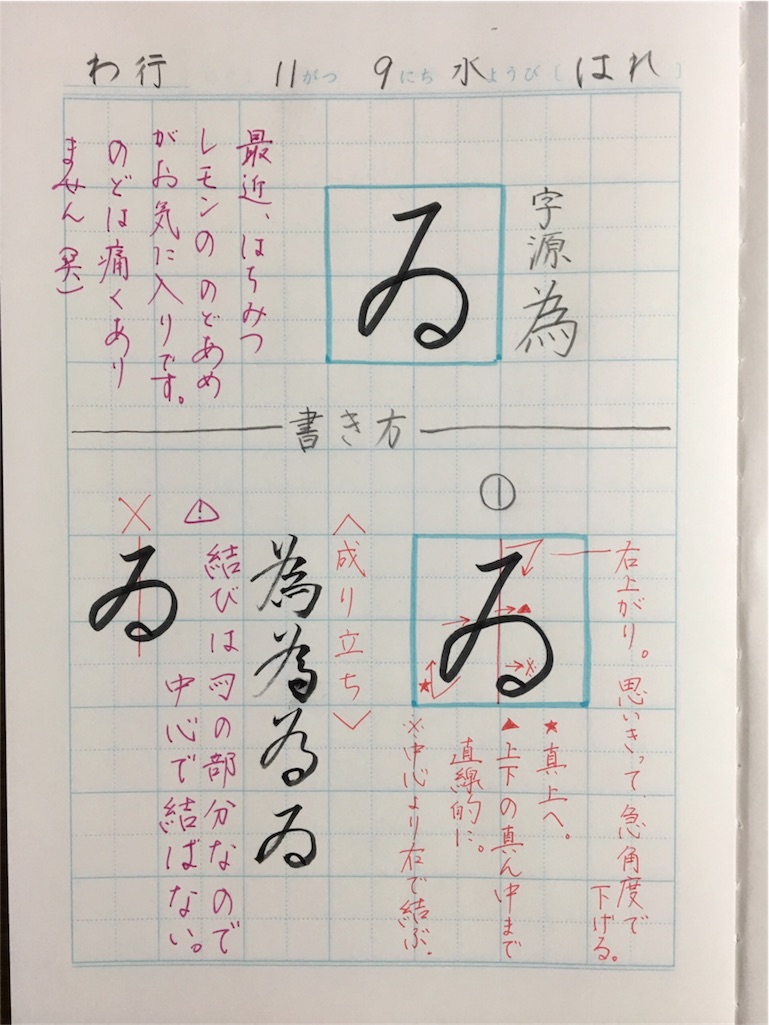 わ行 11がつ 9にち 水ようび(はれ)
字源 為
ゐ
最近、はちみつ
レモンののどあめ
がお気に入りです。
のどは痛くあり
ません(笑)
書き方
①
ゐ
右上がり。思いきって、急角度で
下げる。
★真上へ。
▲上下の真ん中まで
直線的に。
※中心より右で結ぶ.
★
▲
※
〈成り立ち〉
為
為
ゐ
ゐ
⚠
結びは の部分なので
中心で結ばない。
×
ゐ